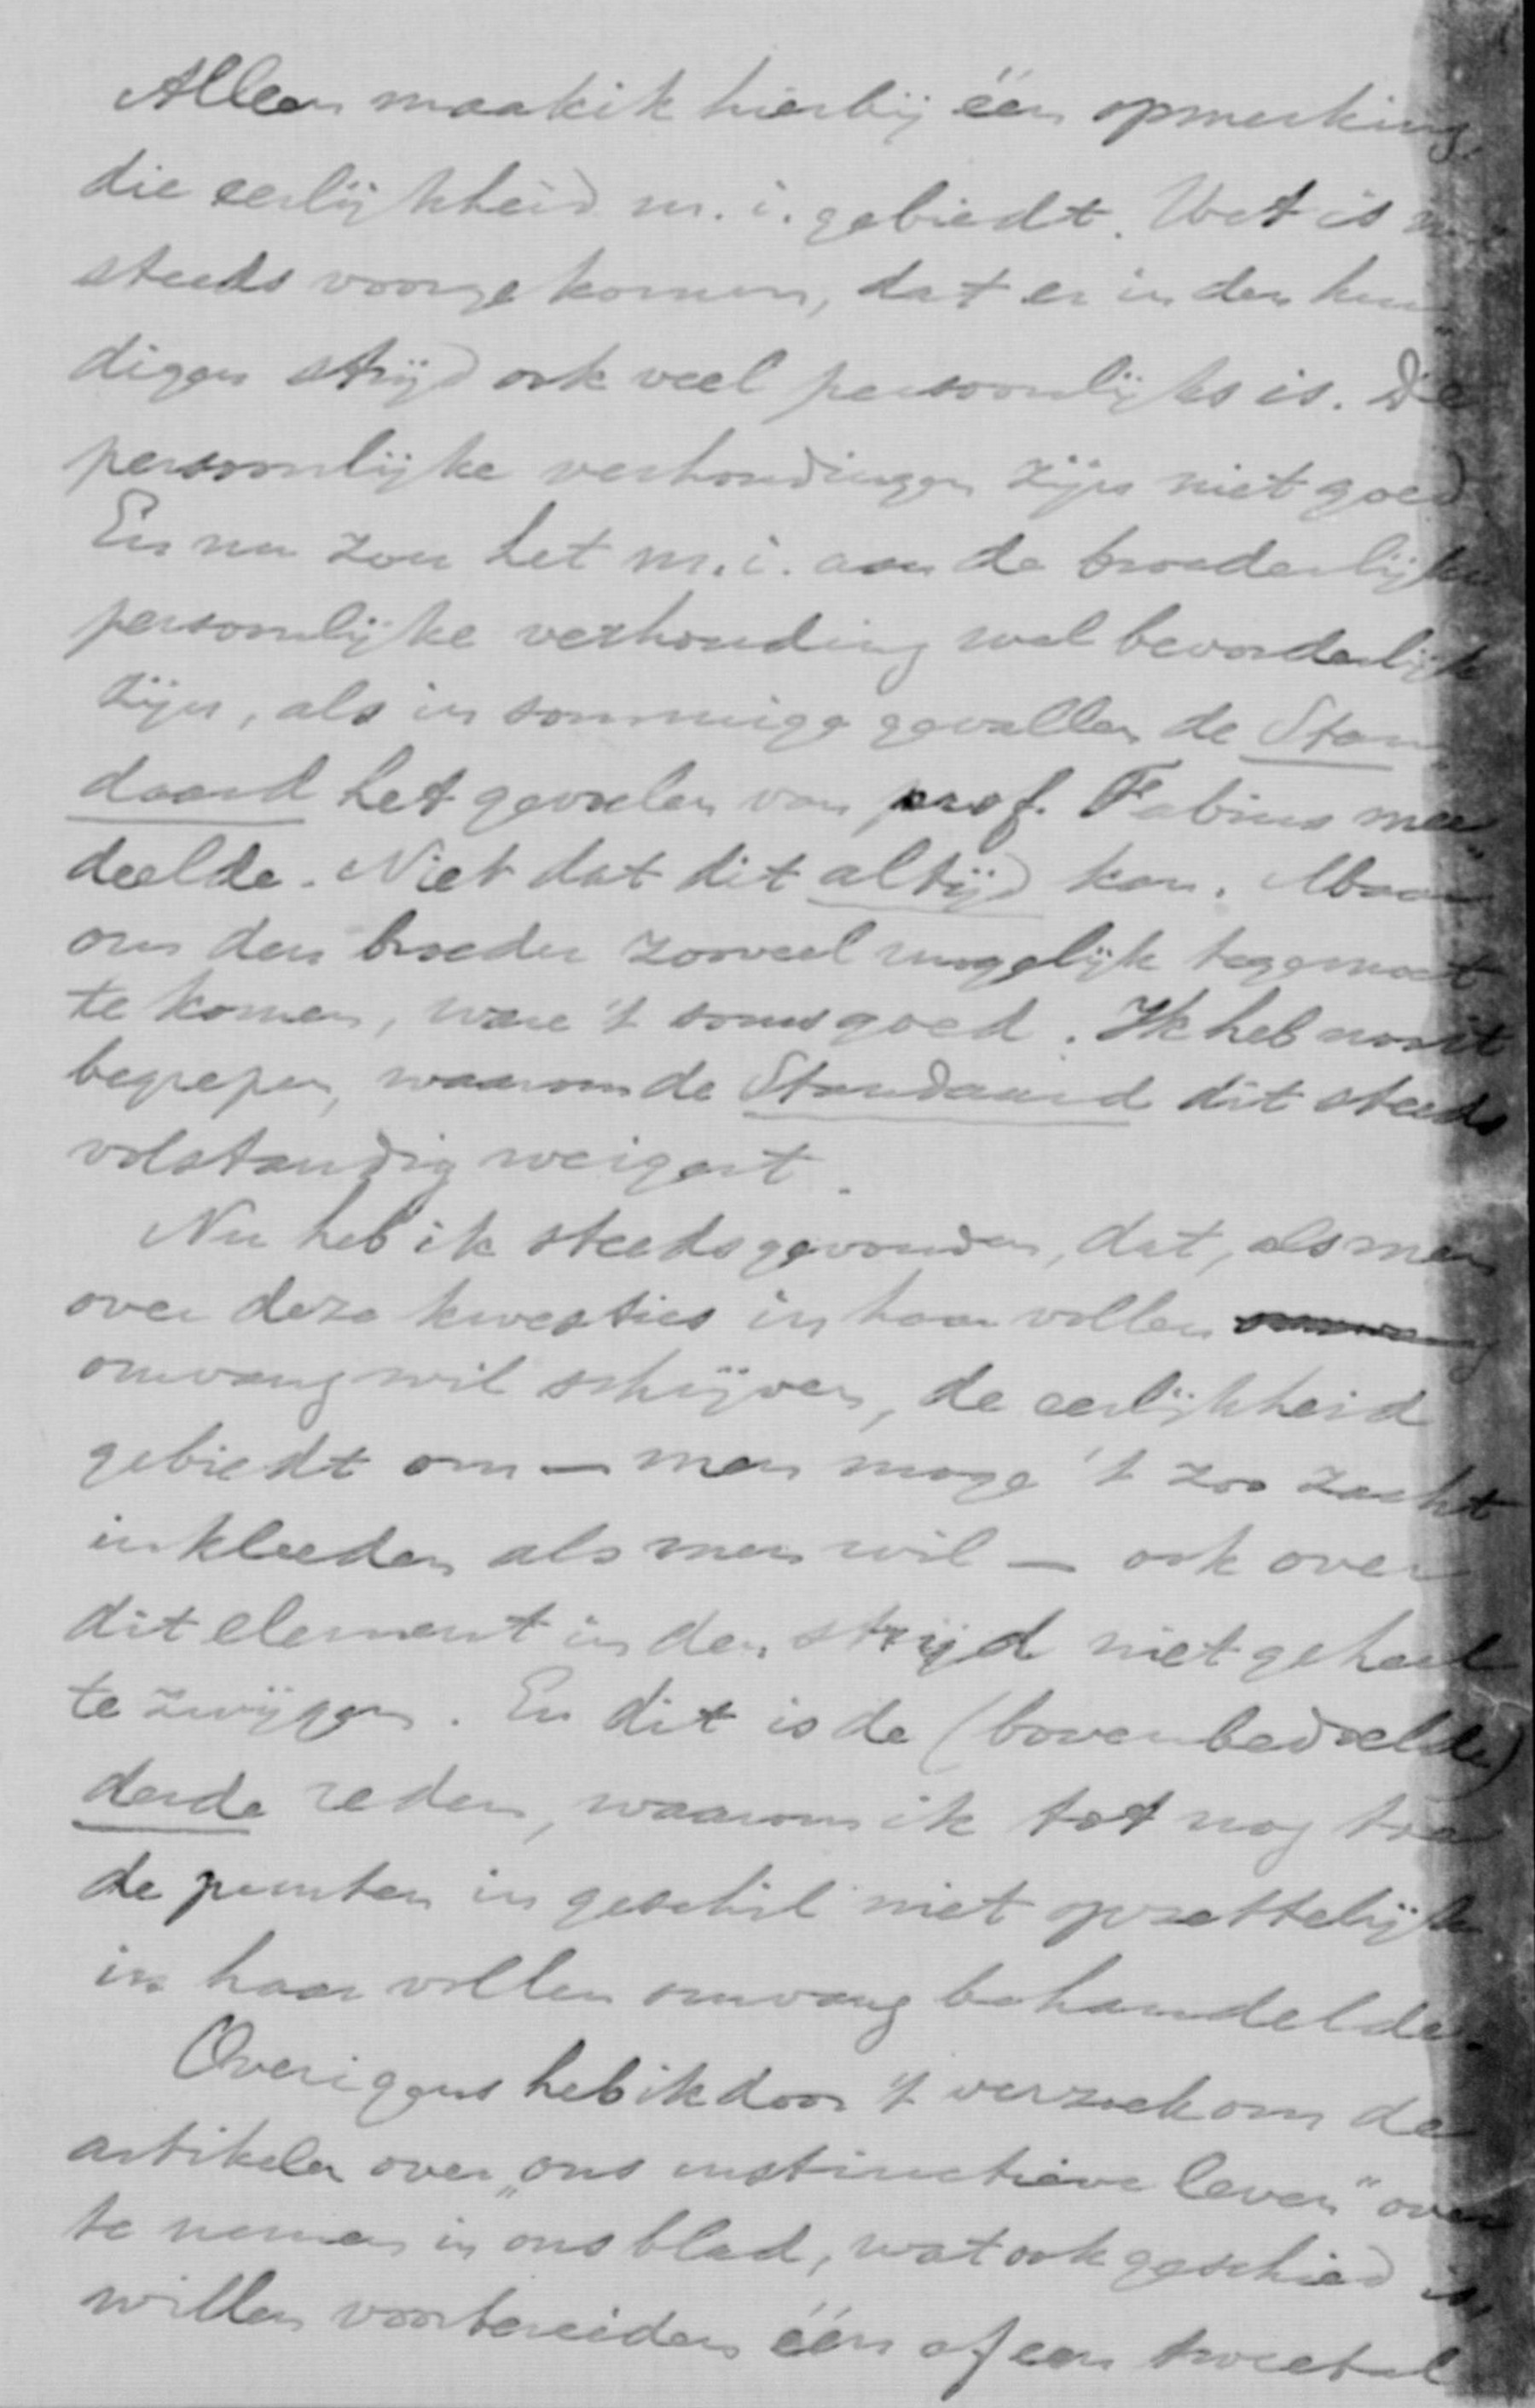 Alleen maak ik hierbij één opmerking,
die eerlijkheid m. i. gebiedt. Het is mij
steeds voorgekomen, dat er in den hui-
digen strijd ook veel persoonlijks is. De
persoonlijke verhoudingen zijn niet goed.
En nu zou het m. i. aan de broederlijke
persoonlijke verhouding wel bevorderlijk
zijn, als in sommige gevallen de Stan-
daard het gevoelen van prof. Fabius mee-
deelde. Niet dat dit altijd kan. Maar
om den broeder zooveel mogelijk tegemoet
te komen, ware 't soms goed. Ik heb nooit
begrepen, waarom de Standaard dit steeds
volstandig weigert.
Nu heb ik steeds gevonden, dat, als men
over deze kwesties in haar vollen
omvang wil schrijven, de eerlijkheid
gebiedt om — men moge 't zoo zacht
inkleeden als men wil — ook over
dit element in den strijd niet geheel
te zwijgen. En dit is de (bovenbedoelde)
derde reden, waarom ik tot nog toe
de punten in geschil niet opzettelijk
in haar vollen omvang behandelde.
Overigens heb ik door 't verzoek om de
artikelen over „ons instinctieve leven" over
te nemen in ons blad, wat ook geschied is,
willen voorbereiden één of een tweetal